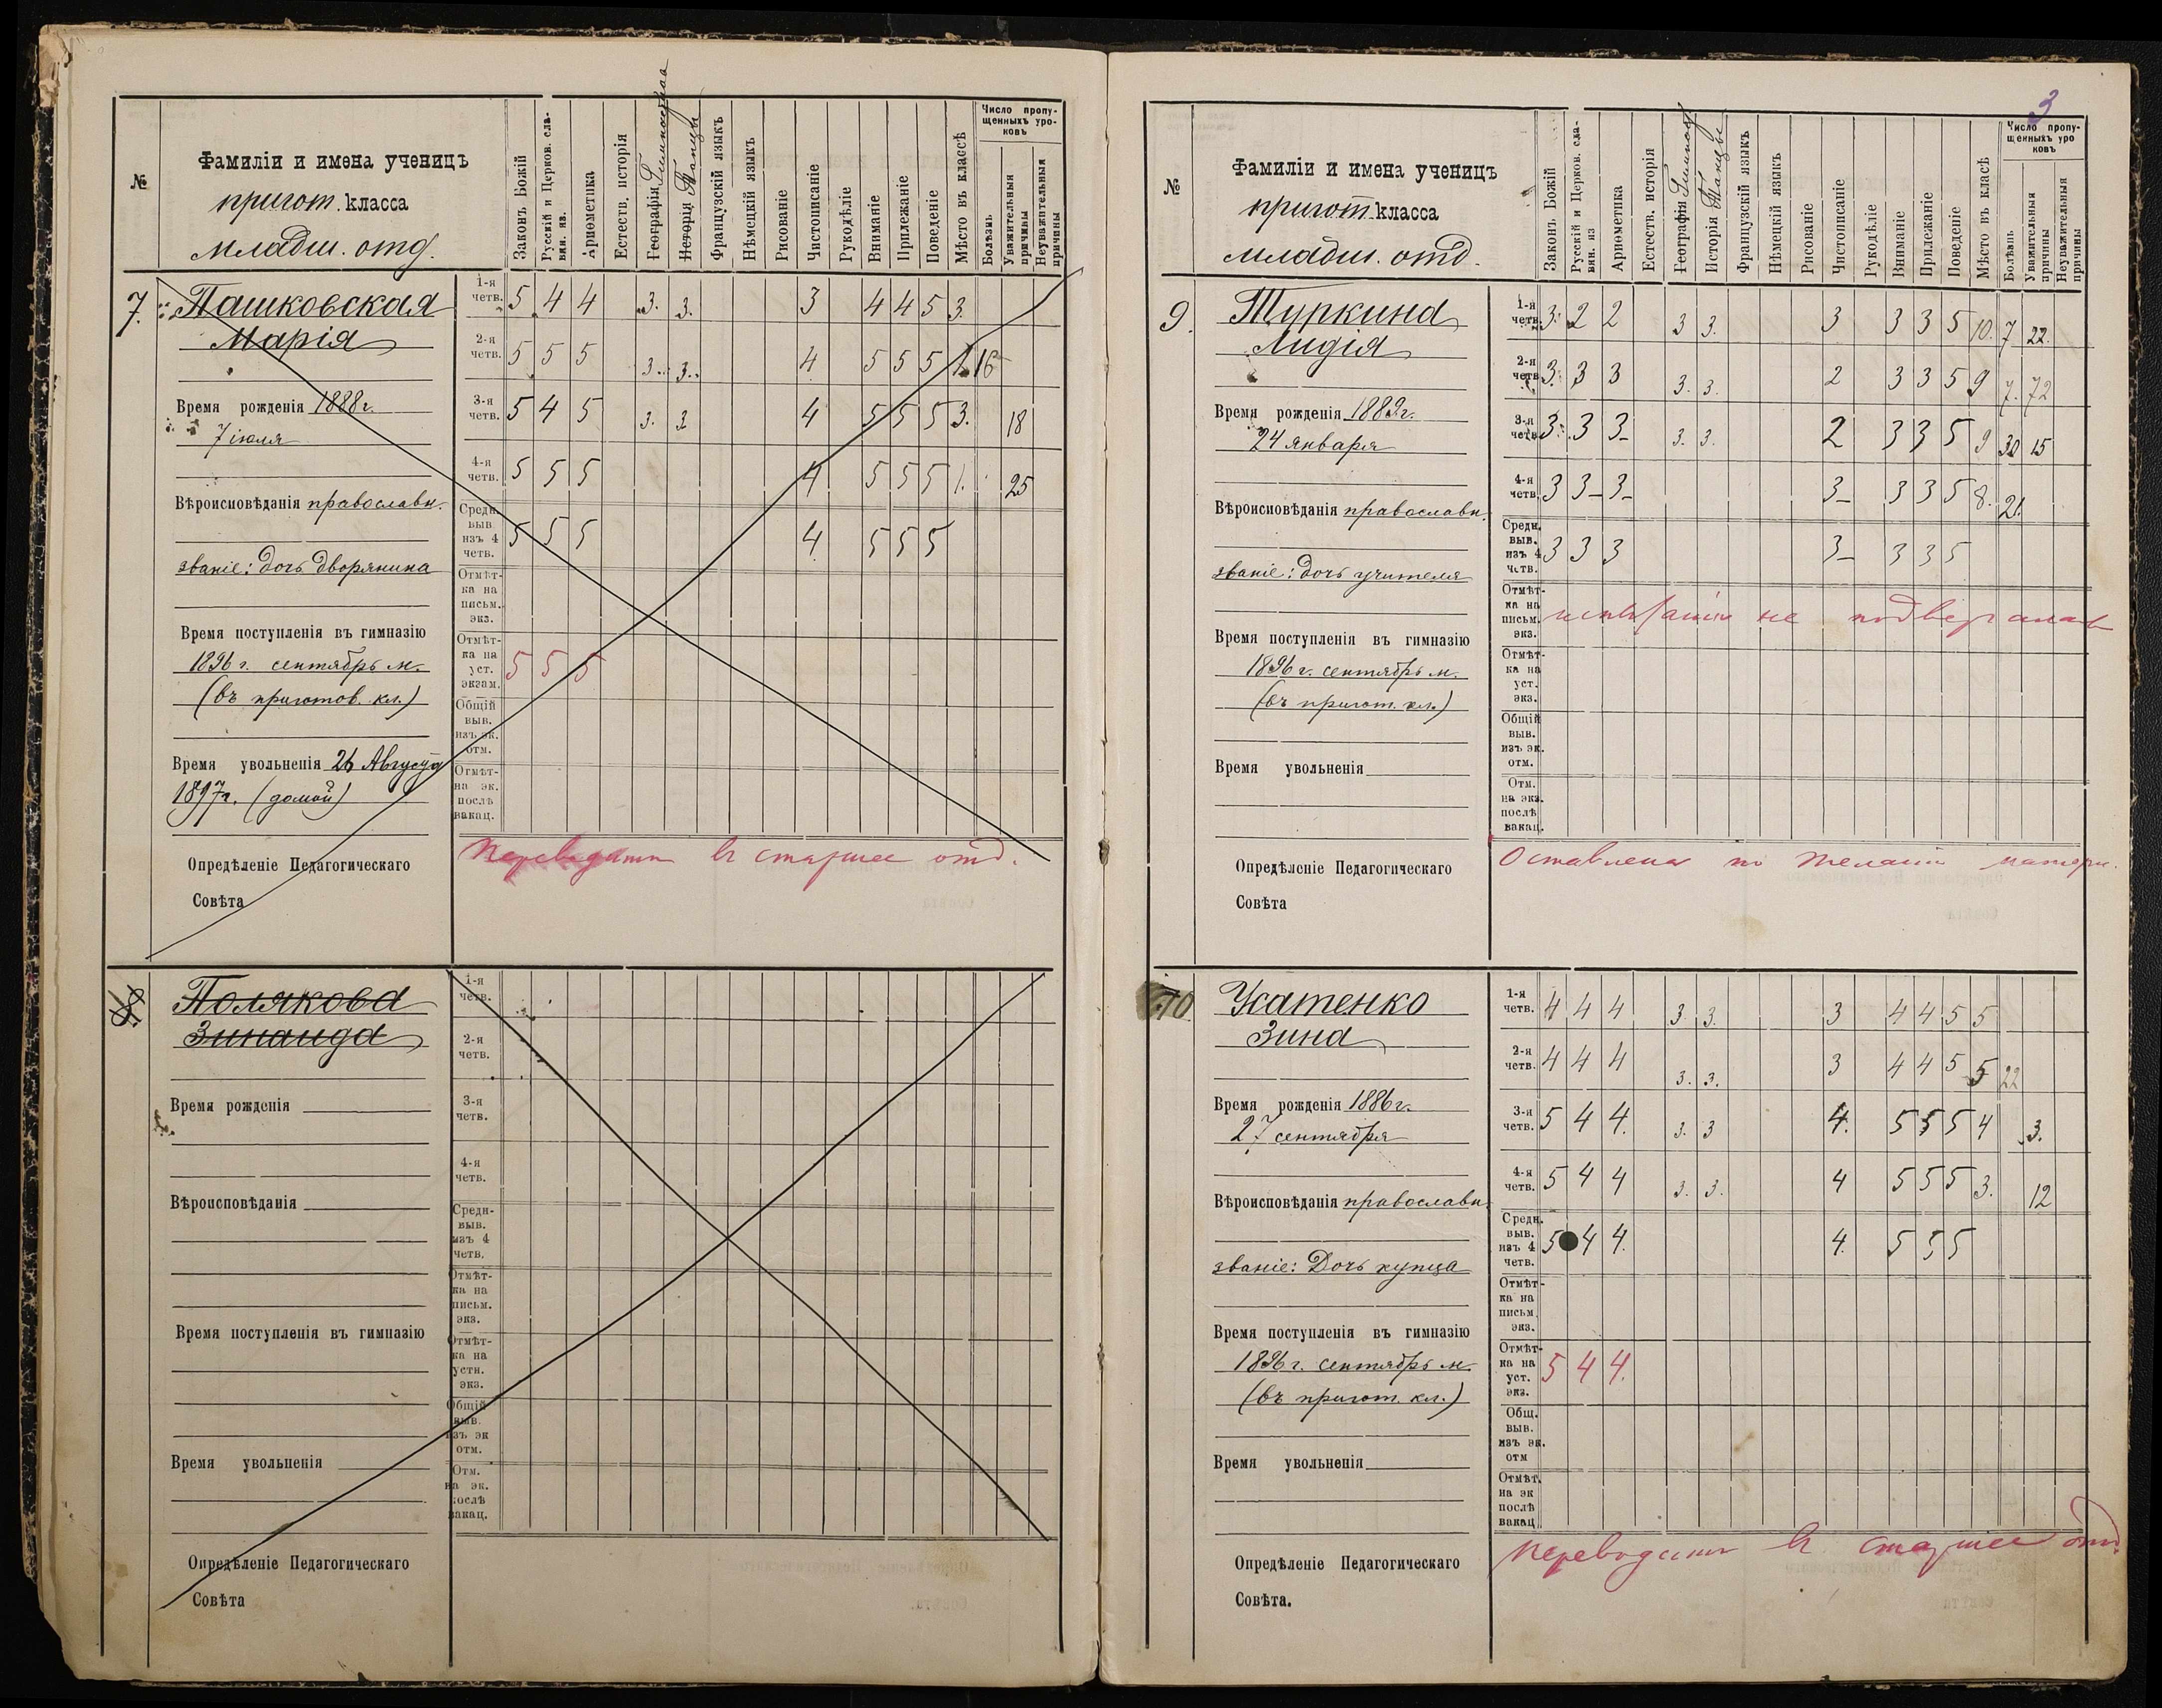 №
Фамиліи и имена ученицъ
пригот. класса
младш. отд.
Законъ Божій
Русскій и Церков. сла-
вян. яз.
Ариѳметика
Естеств. исторія
Географія Гимнастика
Исторія Танцы
Французскій языкъ
Нѣмецкій языкъ
Рисованіе
Чистописаніе
Рукодѣліе
Вниманіе
Прилежаніе
Поведеніе
Мѣсто въ классѣ
Число пропу-
щенныхъ уро-
ковъ
Болѣзнь
Уважительныя
причины
Неуважительныя
причины
7. Пашковская
Марія
Время рожденія 1888 г.
7 іюля
Вѣроисповѣданія православн.
званіе: дочь дворянина
Время поступленія въ гимназію
1896 г. сентябрь м.
(въ приготов. кл.)
Время увольненія 26 Августа
1897 г. (домой)
Опредѣленіе Педагогическаго
Совѣта
1-я четв. 5 4 4 3. 3. 3 4 4 5 3.
2-я четв. 5 5 5 3. 3. 4 5 5 5 1. 16
3-я четв. 5 4 5 3. 3 4 5 5 5 3. 18
4-я четв. 5 5 5 4 5 5 5 1. 25
Средн. выв. изъ 4 четв. 5 5 5 4 5 5 5
Отмѣт-
ка на
письм.
экз.
Отмѣт-
ка на
уст.
экзам. 5 5 5
Общій
выв.
изъ эк.
отм.
Отмѣт-
на эк.
послѣ
вакац.
Переводится въ старшее отд.
8. Полякова
Зинаида
Время рожденія
Вѣроисповѣданія
Время поступленія въ гимназію
Время увольненія
Опредѣленіе Педагогическаго
Совѣта
1-я
четв.
2-я
четв.
3-я
четв.
4-я
четв.
Средн-
выв.
изъ 4
четв.
Отмѣт-
ка на
письм.
экз.
Отмѣт-
ка на
устн.
экз.
Общій
выв.
изъ эк
отм.
Отм.
на эк.
послѣ
вакац.
3
№
Фамиліи и имена ученицъ
пригот. класса
младш. отд.
Законъ Божій
Русскій и Церков. сла-
вян. яз
Ариѳметика
Естеств. исторія
Географія Гимнаст
Исторія Танцы
Французскій языкъ
Нѣмецкій языкъ
Рисованіе
Чистописаніе
Рукодѣліе
Вниманіе
Прилежаніе
Поведеніе
Мѣсто въ класѣ
Число пропу-
щенныхъ уро
ковъ
Болѣзнь
Уважительныя
причины
Неуважительныя
причины
9. Туркина
Лидія
Время рожденія 1889 г.
24 января
Вѣроисповѣданія православн.
званіе: дочь учителя
Время поступленія въ гимназію
1896 г. сентябрь м.
(въ пригот. кл.)
Время увольненія
Опредѣленіе Педагогическаго
Совѣта
1-я четв. 3. 2 2 3 3. 3 3 3 5 10. 7 22.
2-я четв. 3. 3 3 3. 3. 2 3 3 5 9 7. 72
3-я четв. 3. 3 3- 3. 3. 2 3 3 5 9 30 15
4-я четв. 3 3- 3- 3- 3 3 5 8. 21.
Средн. выв. изъ 4 четв. 3 3 3 3- 3 3 5
Отмѣт-
ка на
письм.
экз. испытанію не подвергалась
Отмѣт-
ка на
уст.
экз.
Общій
выв.
изъ эк.
отм.
Отм.
на экз.
послѣ
вакац.
Оставлена по желанію матери.
10 Усатенко
Зина
Время рожденія 1886 г.
27 сентября
Вѣроисповѣданія православн.
званіе: Дочь купца
Время поступленія въ гимназію
1896 г. сентябрь м.
(въ пригот. кл.)
Время увольненія
Опредѣленіе Педагогическаго
Совѣта.
1-я четв. 4 4 4 3. 3. 3 4 4 5 5
2-я четв. 4 4 4 3. 3. 3 4 4 5 5 22
3-я четв. 5 4 4. 3. 3 4. 5 5 5 4 3.
4-я четв. 5 4 4 3. 3. 4 5 5 5 3. 12
Средн. выв. изъ 4 четв. 5 4 4. 4. 5 5 5
Отмѣт-
ка на
письм.
экз.
Отмѣт-
ка на
уст.
экз. 5 4 4.
Общ.
выв.
изъ эк.
отм
Отмѣт.
на эк
послѣ
вакац
Переводится въ старшее отд.